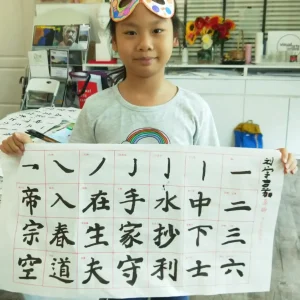 一二三六
丨中下士
亅水抄利
亅手家守
丿在生夫
㇏入春道
乛帝宗空